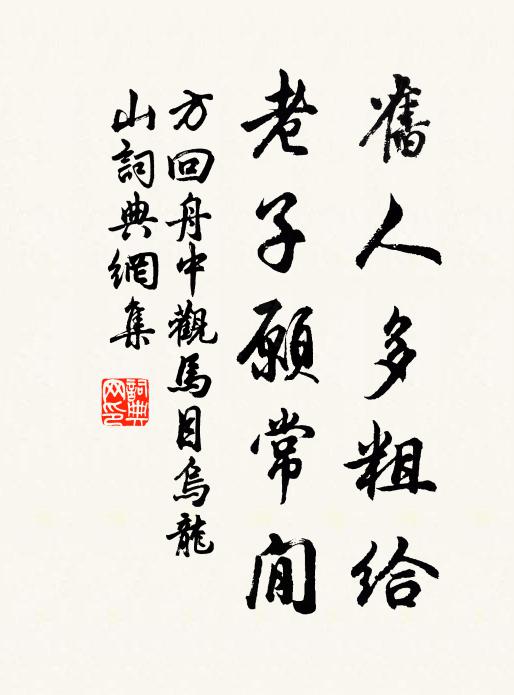 舊人多粗給
老子願常閒
方回舟中觀馬目烏龍
山詞典網集
詞典
网印